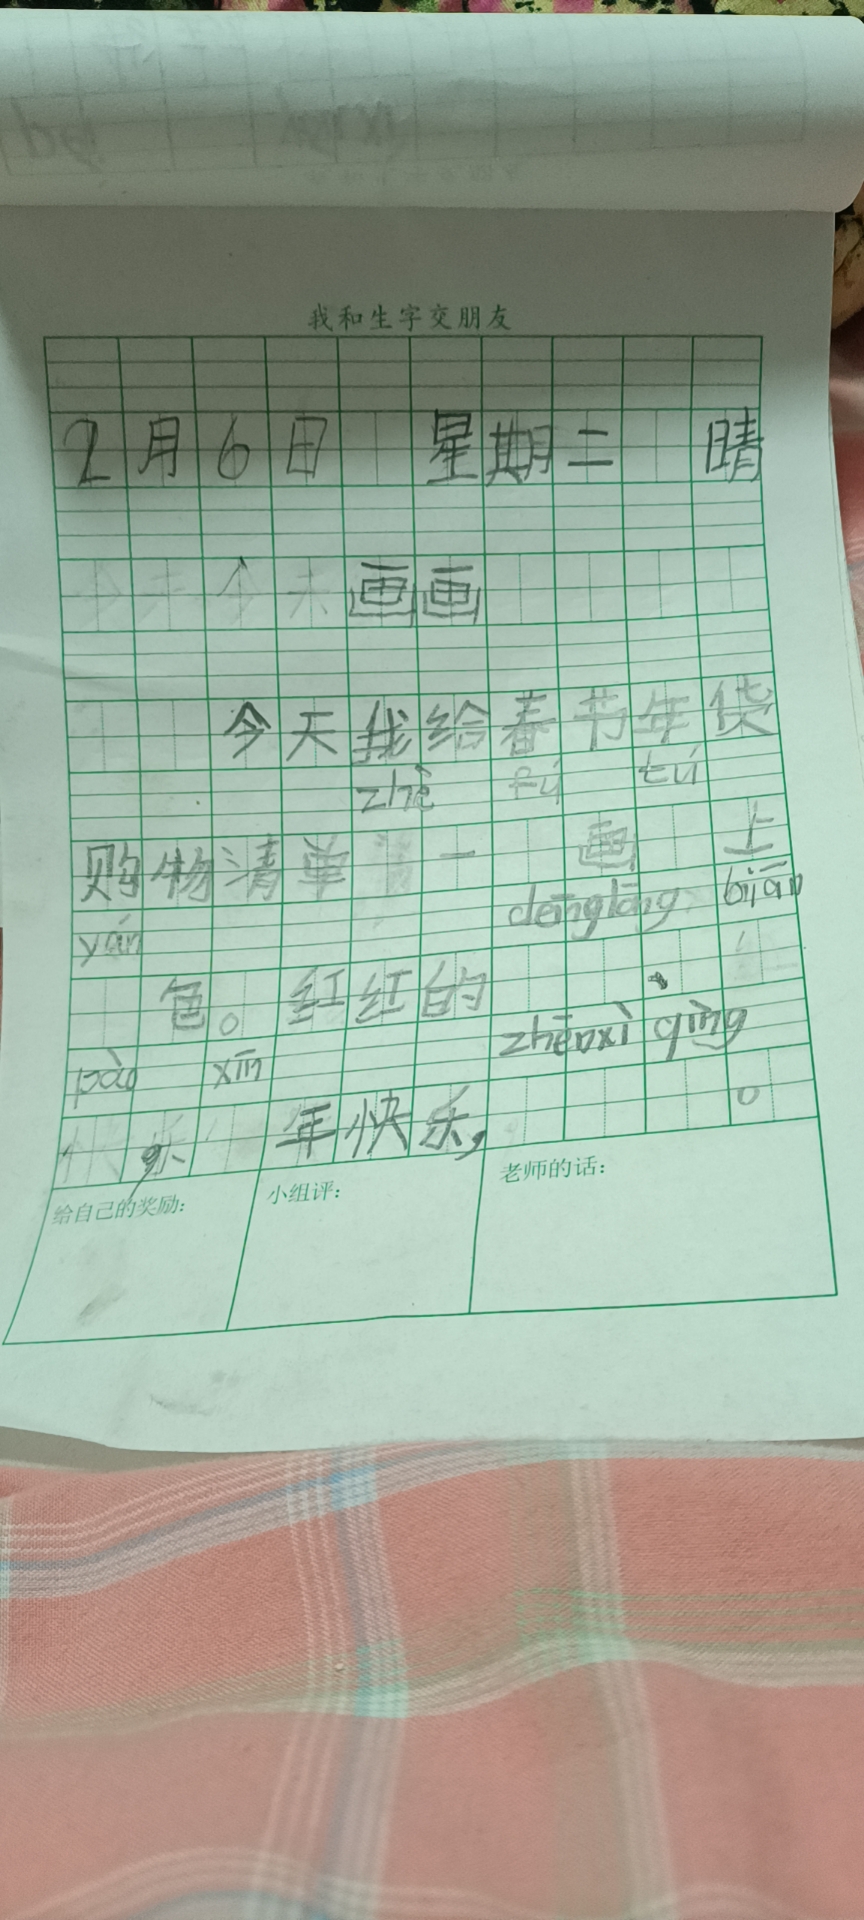 我和生字交朋友
2月6日 星期二 晴
画画
今天我给春节年货
zhè fú tú
购物清单 一 画 上
yán dēnglōng biān
色。红红的
pào xīn zhēnxì qìng
年快乐, 。
给自己的奖励: 小组评: 老师的话: